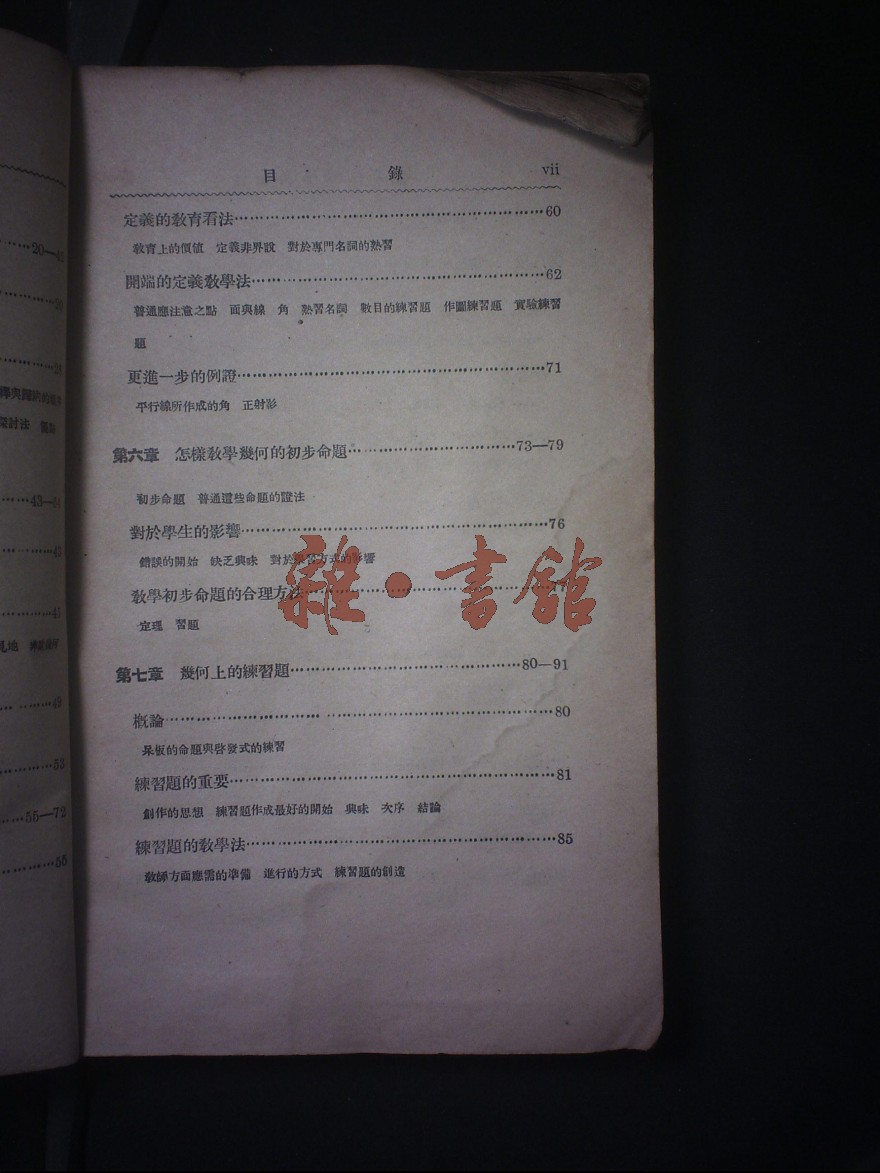 目 錄 vii
定義的教育看法……60
教育上的價值 定義非界說 對於專門名詞的熟習
開端的定義教學法……62
普通應注意之點 面與線 角 熟習名詞 數目的練習題 作圖練習題 實驗練習
題
更進一步的例證……71
平行線所作成的角 正射影
第六章 怎樣教學幾何的初步命題……73—79
初步命題 普通這些命題的證法
對於學生的影響……76
錯誤的開始 缺乏興味 對於學習方式的影響
教學初步命題的合理方法……
定理 習題
第七章 幾何上的練習題……80—91
概論……80
呆板的命題與啓發式的練習
練習題的重要……81
創作的思想 練習題作成最好的開始 興味 次序 結論
練習題的教學法……85
教師方面應需的準備 進行的方式 練習題的創造
雜·書館
20—42
28
43—54
49
53
55—72
55